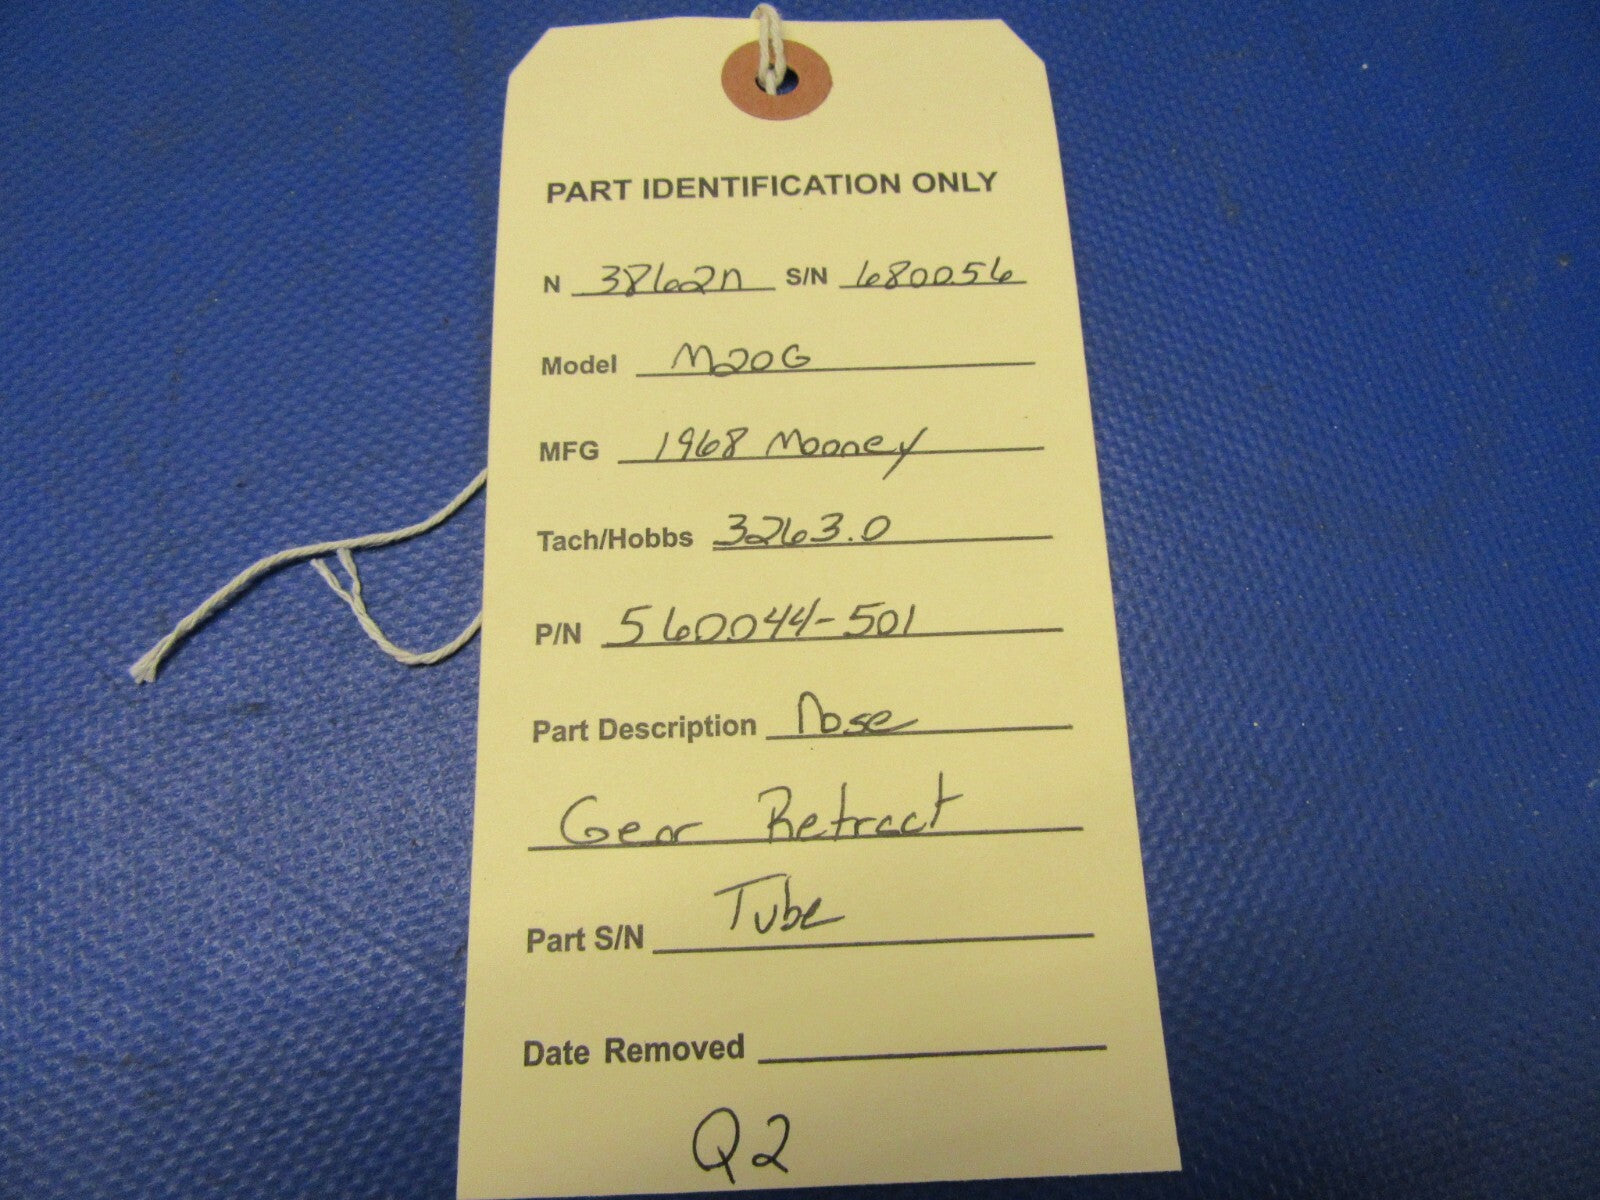 PART IDENTIFICATION ONLY
N 3862N S/N 680056
Model M20G
MFG 1968 Mooney
Tach/Hobbs 3263.0
P/N 560044-501
Part Description Nose
Gear Retract
Part S/N Tube
Date Removed
Q2